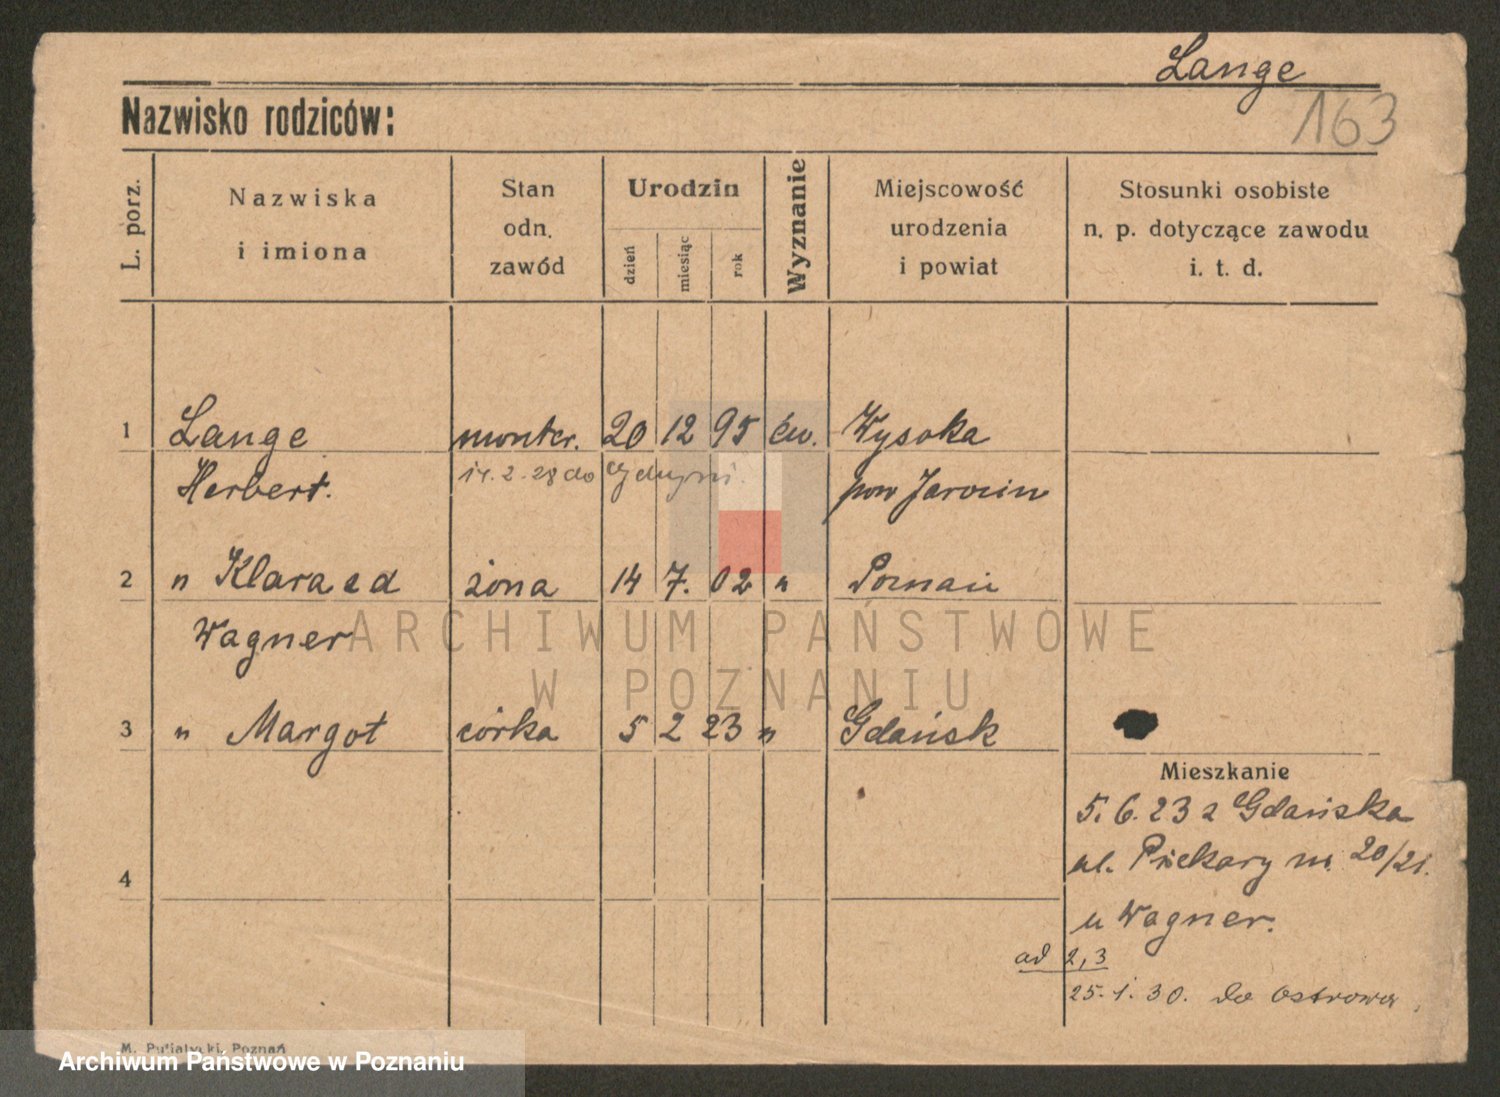 Lange
163
Nazwisko rodziców:
L. porz.
Nazwiska
i imiona
Stan
odn.
zawód
Urodzin
dzień
miesiąc
rok
Wyznanie
Miejscowość
urodzenia
i powiat
Stosunki osobiste
n. p. dotyczące zawodu
i. t. d.
1 Lange monter. 20 12 95 ew. Wysoka
Herbert. 14.2.28 do Gdyni. pow Jarocin
2 " Klara zd żona 14 7. 02 " Poznań
Wagner
3 " Margot córka 5 2 23 " Gdańsk
Mieszkanie
5.6.23 z Gdańska
4
ul. Piekary nr. 20/21.
u Wagner.
ad 2,3
25.1.30. do Ostrowa
ARCHIWUM PAŃSTWOWE
W POZNANIU
M. Putiatycki, Poznań
Archiwum Państwowe w Poznaniu